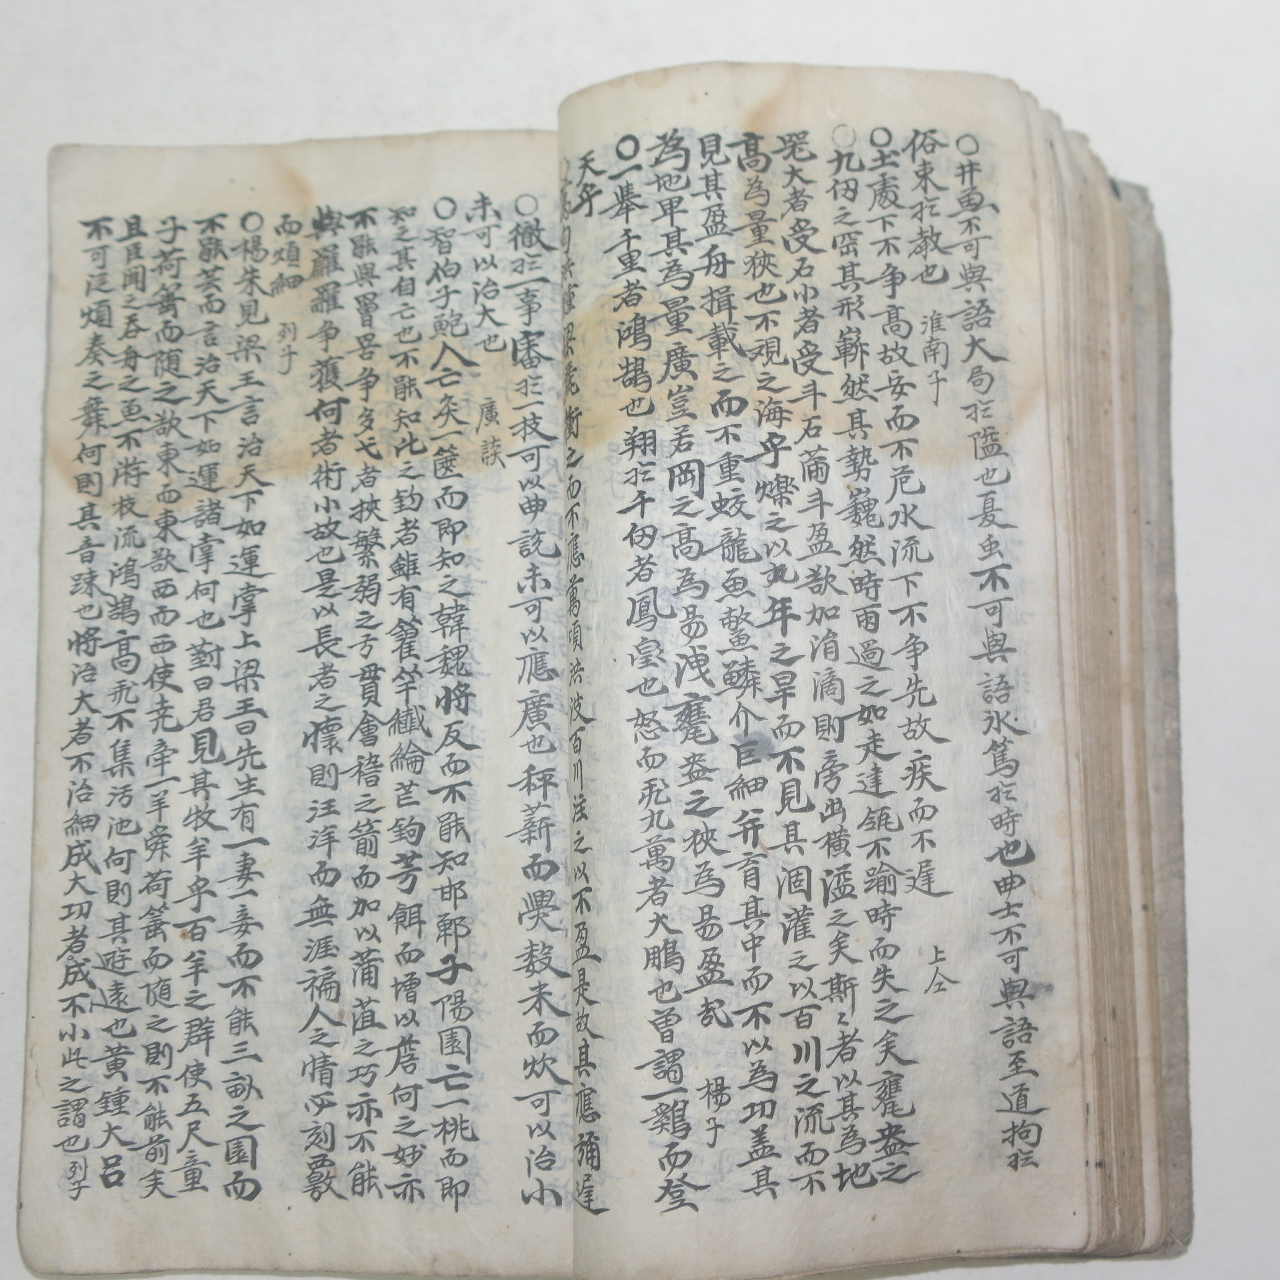 ○井魚不可與語大局於隘也夏虫不可與語氷篤於時也曲士不可與語至道拘於
俗束於教也 淮南子
○土處下不争高故安而不危水流下不争先故疾而不遅 上仝
○九仞之罃其形嶄然其勢巍然時雨過之如走達瓴不踰時而失之矣甕盎之
器大者受石小者受斗石蒲斗盈欲加涓滴則旁出横溢之矣斯之者以其為地
高為量狹也不覌之海乎爍之以九年之旱而不見其涸灌之以百川之流而不
見其盈舟揖載之而不重蛟龍魚鱉鱗介巨細并育其中而不以為功盖其
為地卑其為量廣豈若岡之高為易洩甕盎之狹為易盈㢤 楊子
○一擧千里者鴻鵠也翔於千仞者鳳皇也怒而飛九萬者大鵬也曽謂一鷄而登
天乎
衡之而不應萬頃洪波百川注之以不盈是故其應彌遅
○徹於一事審於一技可以曲說未可以應廣也秤薪而爨數米而炊可以治小
未可以治大也 廣談
○智伯子鮑人亡灸一篋而即知之韓魏將反而不能知邯鄲子陽園亡一桃而即
知之其自亡也不能知此之釣者雖有籊竿纖綸芒鉤芳餌而增以詹何之妙亦
不能與罾罟争多弋者挾繁弱之弓貫會稽之箭而加以蒲葅之巧亦不能
與羅羅争獲何者術小故也是以長者之懷則汪洋而無涯褊人之情必刻覈
而煩細 列子
○楊朱見梁王言治天下如運掌上梁王曰先生有一妻一妾而不能三畝之園而
不能芸而言治天下如運諸掌何也對曰君見其牧羊乎百羊之群使五尺童
子荷箠而随之欲東而東欲西而西使尭牵一羊舜荷箠而随之則不能前矣
且臣聞之吞舟之魚不游枝流鴻鵠髙飛不集汚池何則其遊遠也黄鍾大吕
不可泛煩奏之舞何則其音踈也將治大者不治細成大功者成不小此之謂也 列子